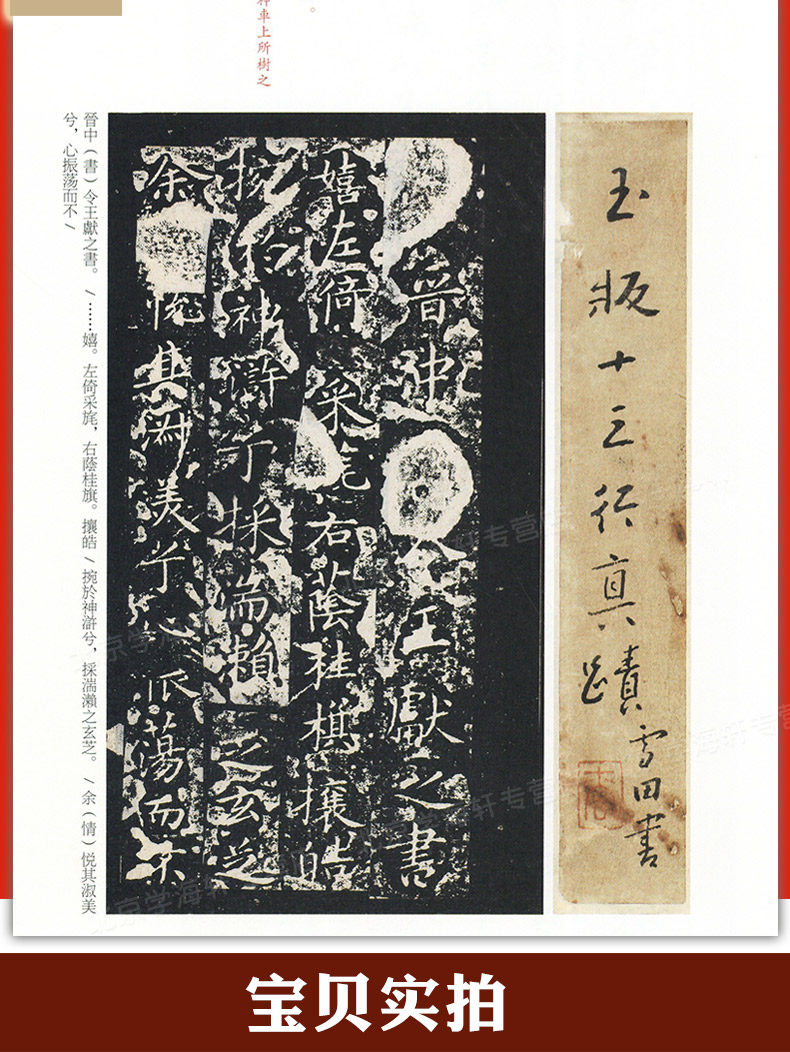 車上所樹之
玉版十三行真蹟 雪田書
晉中令王獻之書
嬉左倚采旄右蔭桂旗攘皓
捥於神滸兮採湍瀨之玄芝
余悅其淑美兮心振蕩而不
晉中（書）令王獻之書。/……嬉。左倚采旄，右蔭桂旗。攘皓/捥於神滸兮，採湍瀨之玄芝。/余（情）悅其淑美
兮，心振蕩而不/
京学海轩专营
宝贝实拍